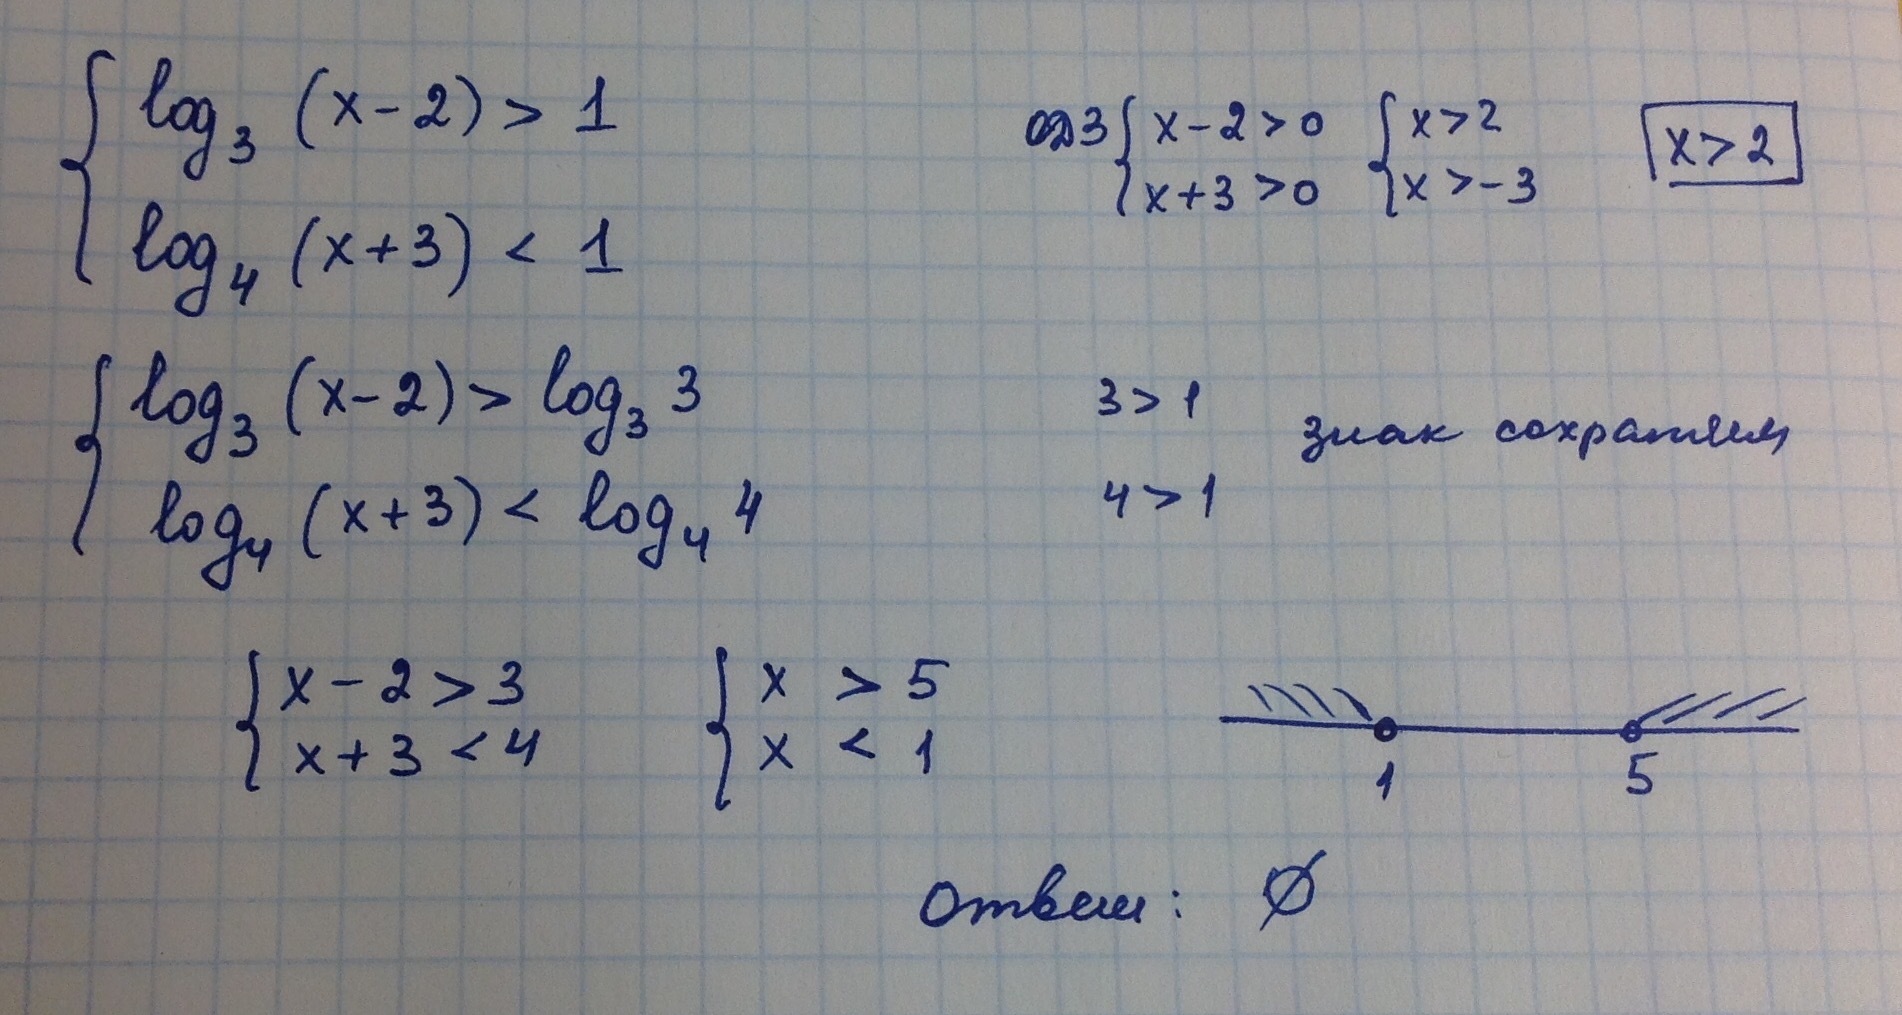 log₃ (x-2) > 1
log₄ (x+3) < 1
ОДЗ x-2>0 x>2 x>2
x+3>0 x>-3
log₃ (x-2) > log₃ 3
log₄ (x+3) < log₄ 4
3>1
4>1
знак сохраняем
x-2>3 x>5
x+3<4 x<1
1 5
Ответ: ∅